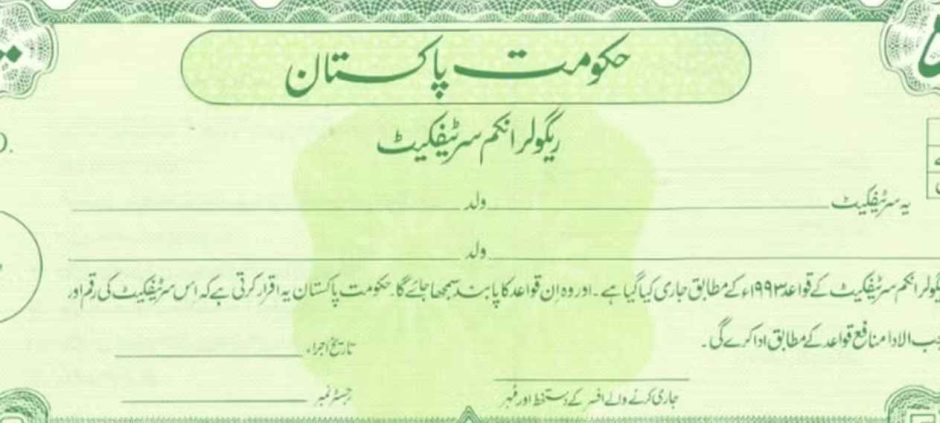 حکومت پاکستان
ریگولر انکم سرٹیفکیٹ
یہ سرٹیفکیٹ ولد
ولد
انکم سرٹیفکیٹ کے قواعد ۱۹۹۳ء کے مطابق جاری کیا گیا ہے ۔ اور وہ ان قواعد کا پابند سمجھا جائے گا۔ حکومت پاکستان یہ اقرار کرتی ہے کہ اس سرٹیفکیٹ کی رقم اور
الادا منافع قواعد کے مطابق ادا کرے گی ۔
تاریخ اجراء
جاری کرنے والے افسر کے دستخط اور مُہر
رجسٹر نمبر